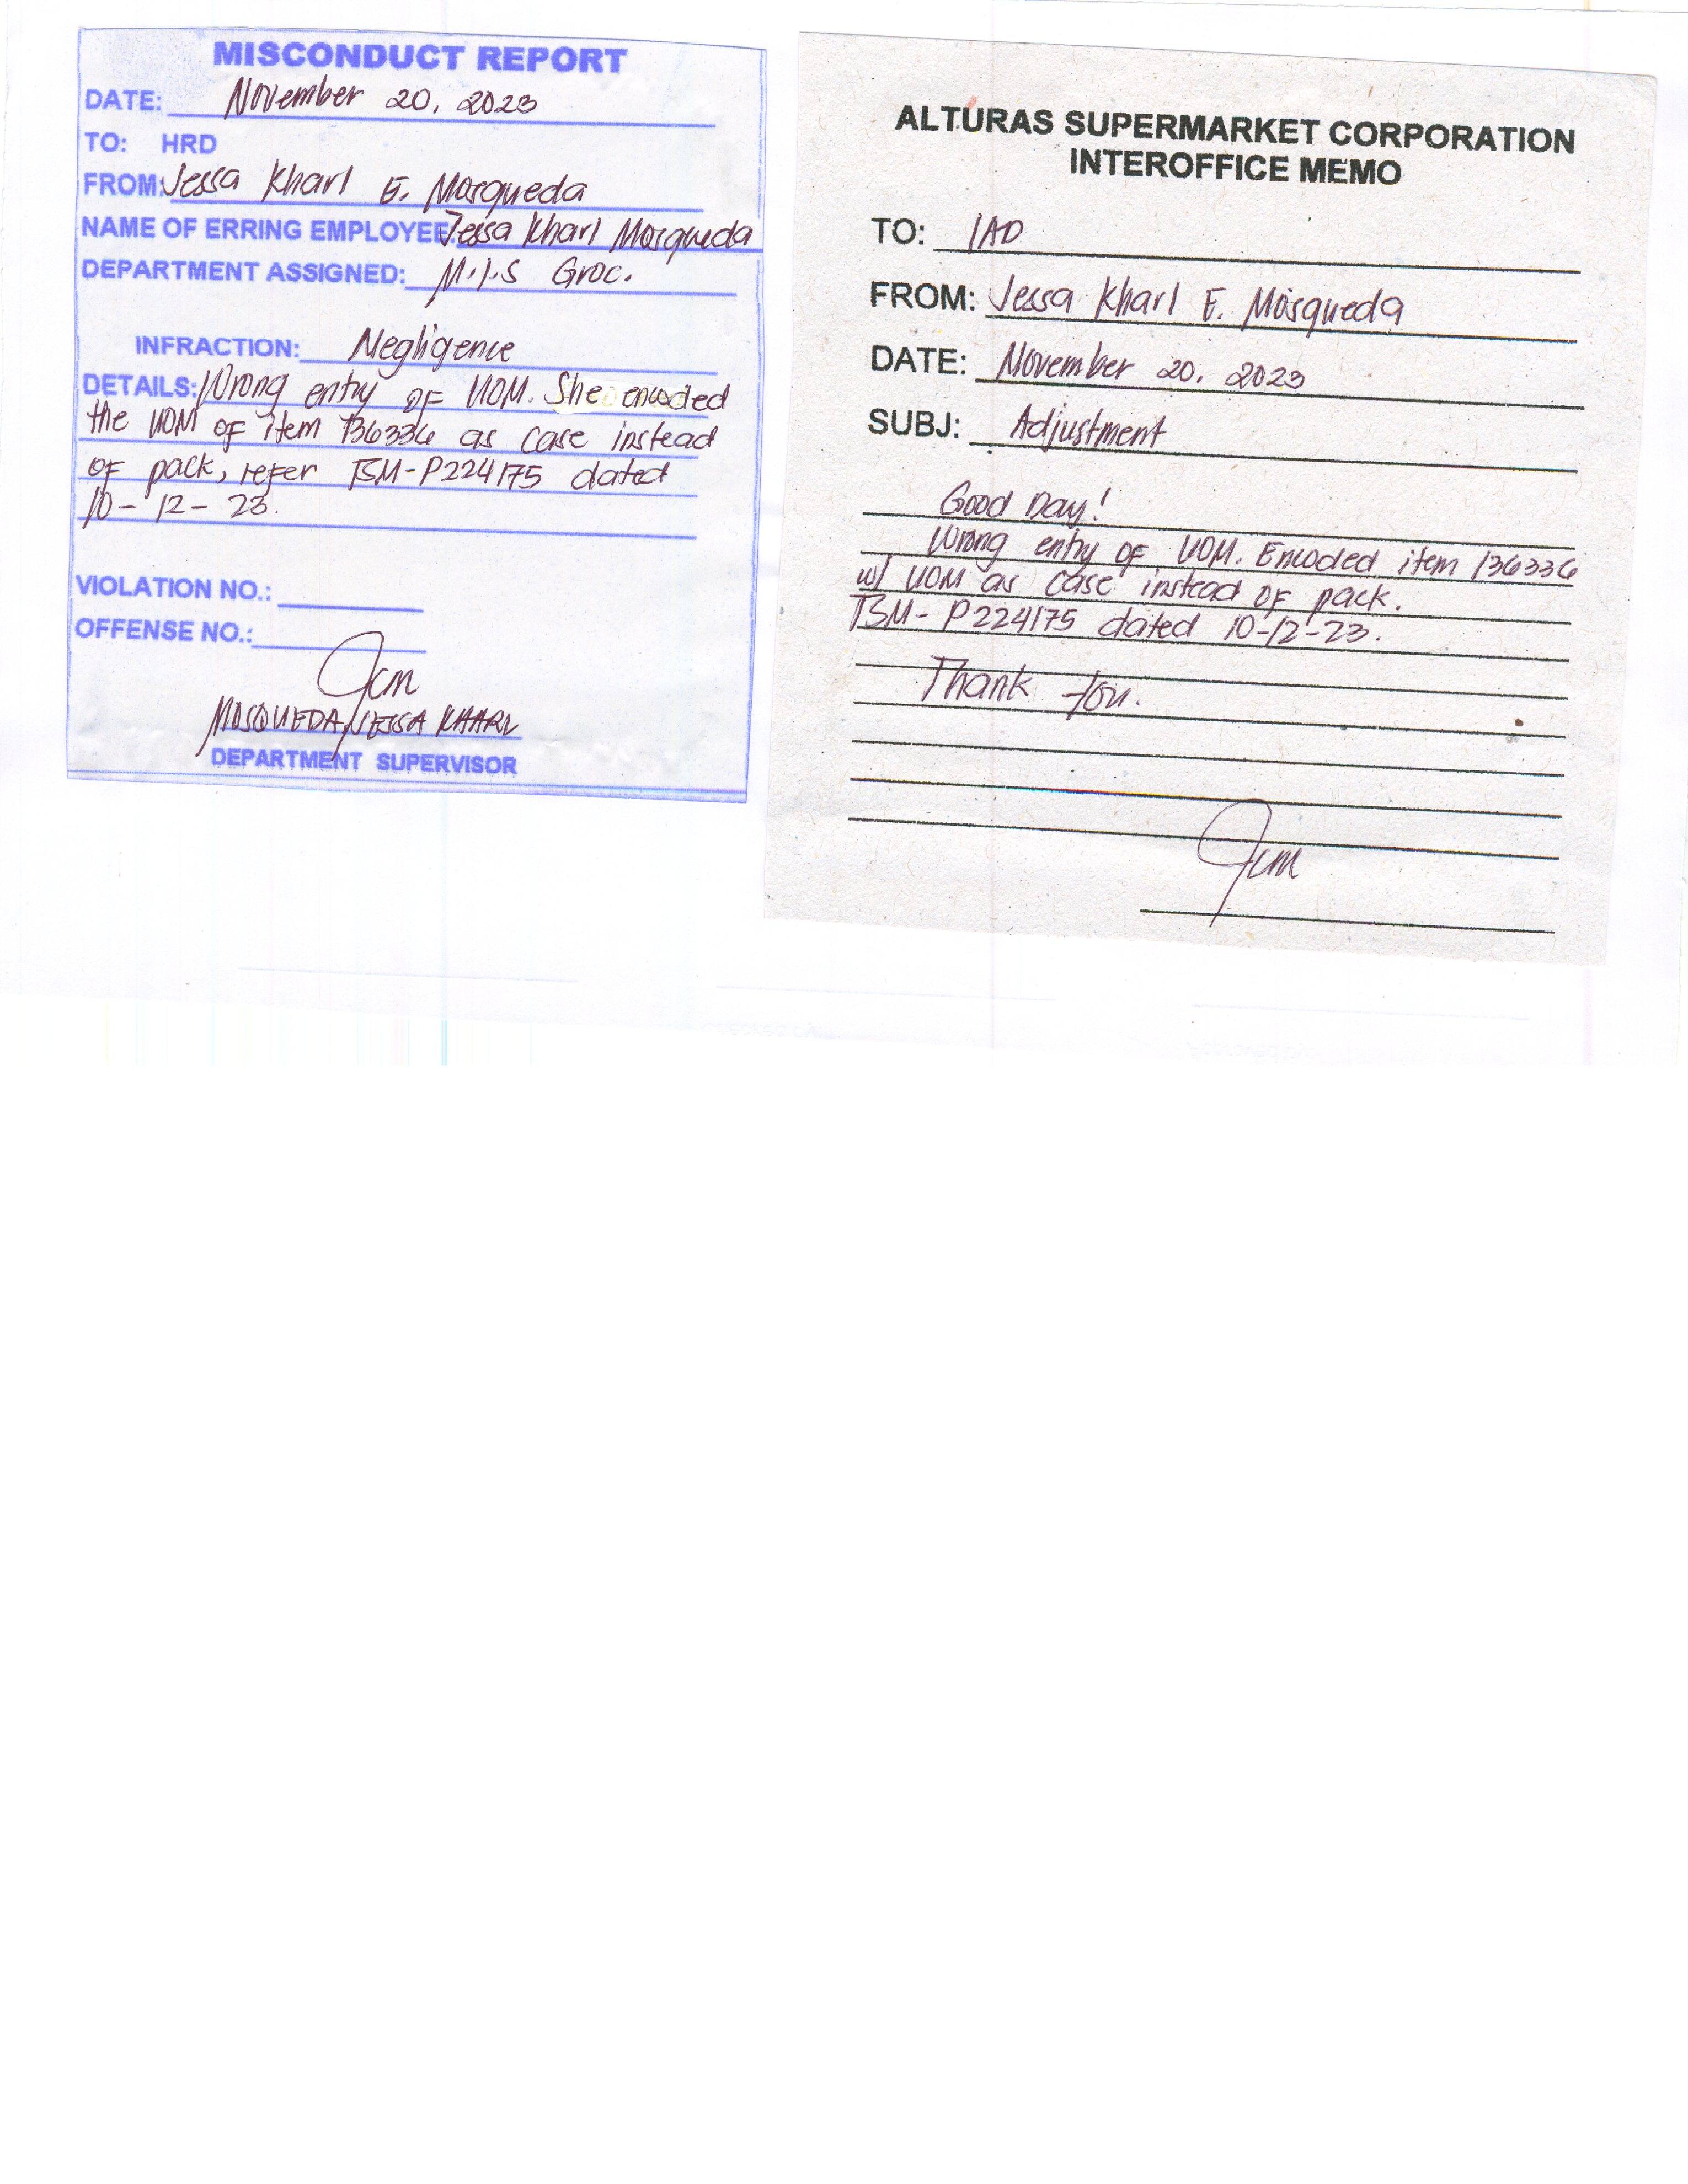 MISCONDUCT REPORT
DATE: November 20, 2023
TO: HRD
FROM: Jessa Kharl E. Mosqueda
NAME OF ERRING EMPLOYEE: Jessa Kharl Mosqueda
DEPARTMENT ASSIGNED: M.I.S Groc.
INFRACTION: Negligence
DETAILS: Wrong entry of UOM. She encoded
the UOM of item 136336 as case instead
of pack, refer BSM-P224175 dated
10-12-23.
VIOLATION NO.:
OFFENSE NO.:
Jcm
MOSQUEDA, JESSA KHARL
DEPARTMENT SUPERVISOR
ALTURAS SUPERMARKET CORPORATION
INTEROFFICE MEMO
TO: IAD
FROM: Jessa Kharl E. Mosqueda
DATE: November 20, 2023
SUBJ: Adjustment
Good Day!
Wrong entry of UOM. Encoded item 136336
w/ UOM as case instead of pack.
BSM-P224175 dated 10-12-23.
Thank You.
Jcm